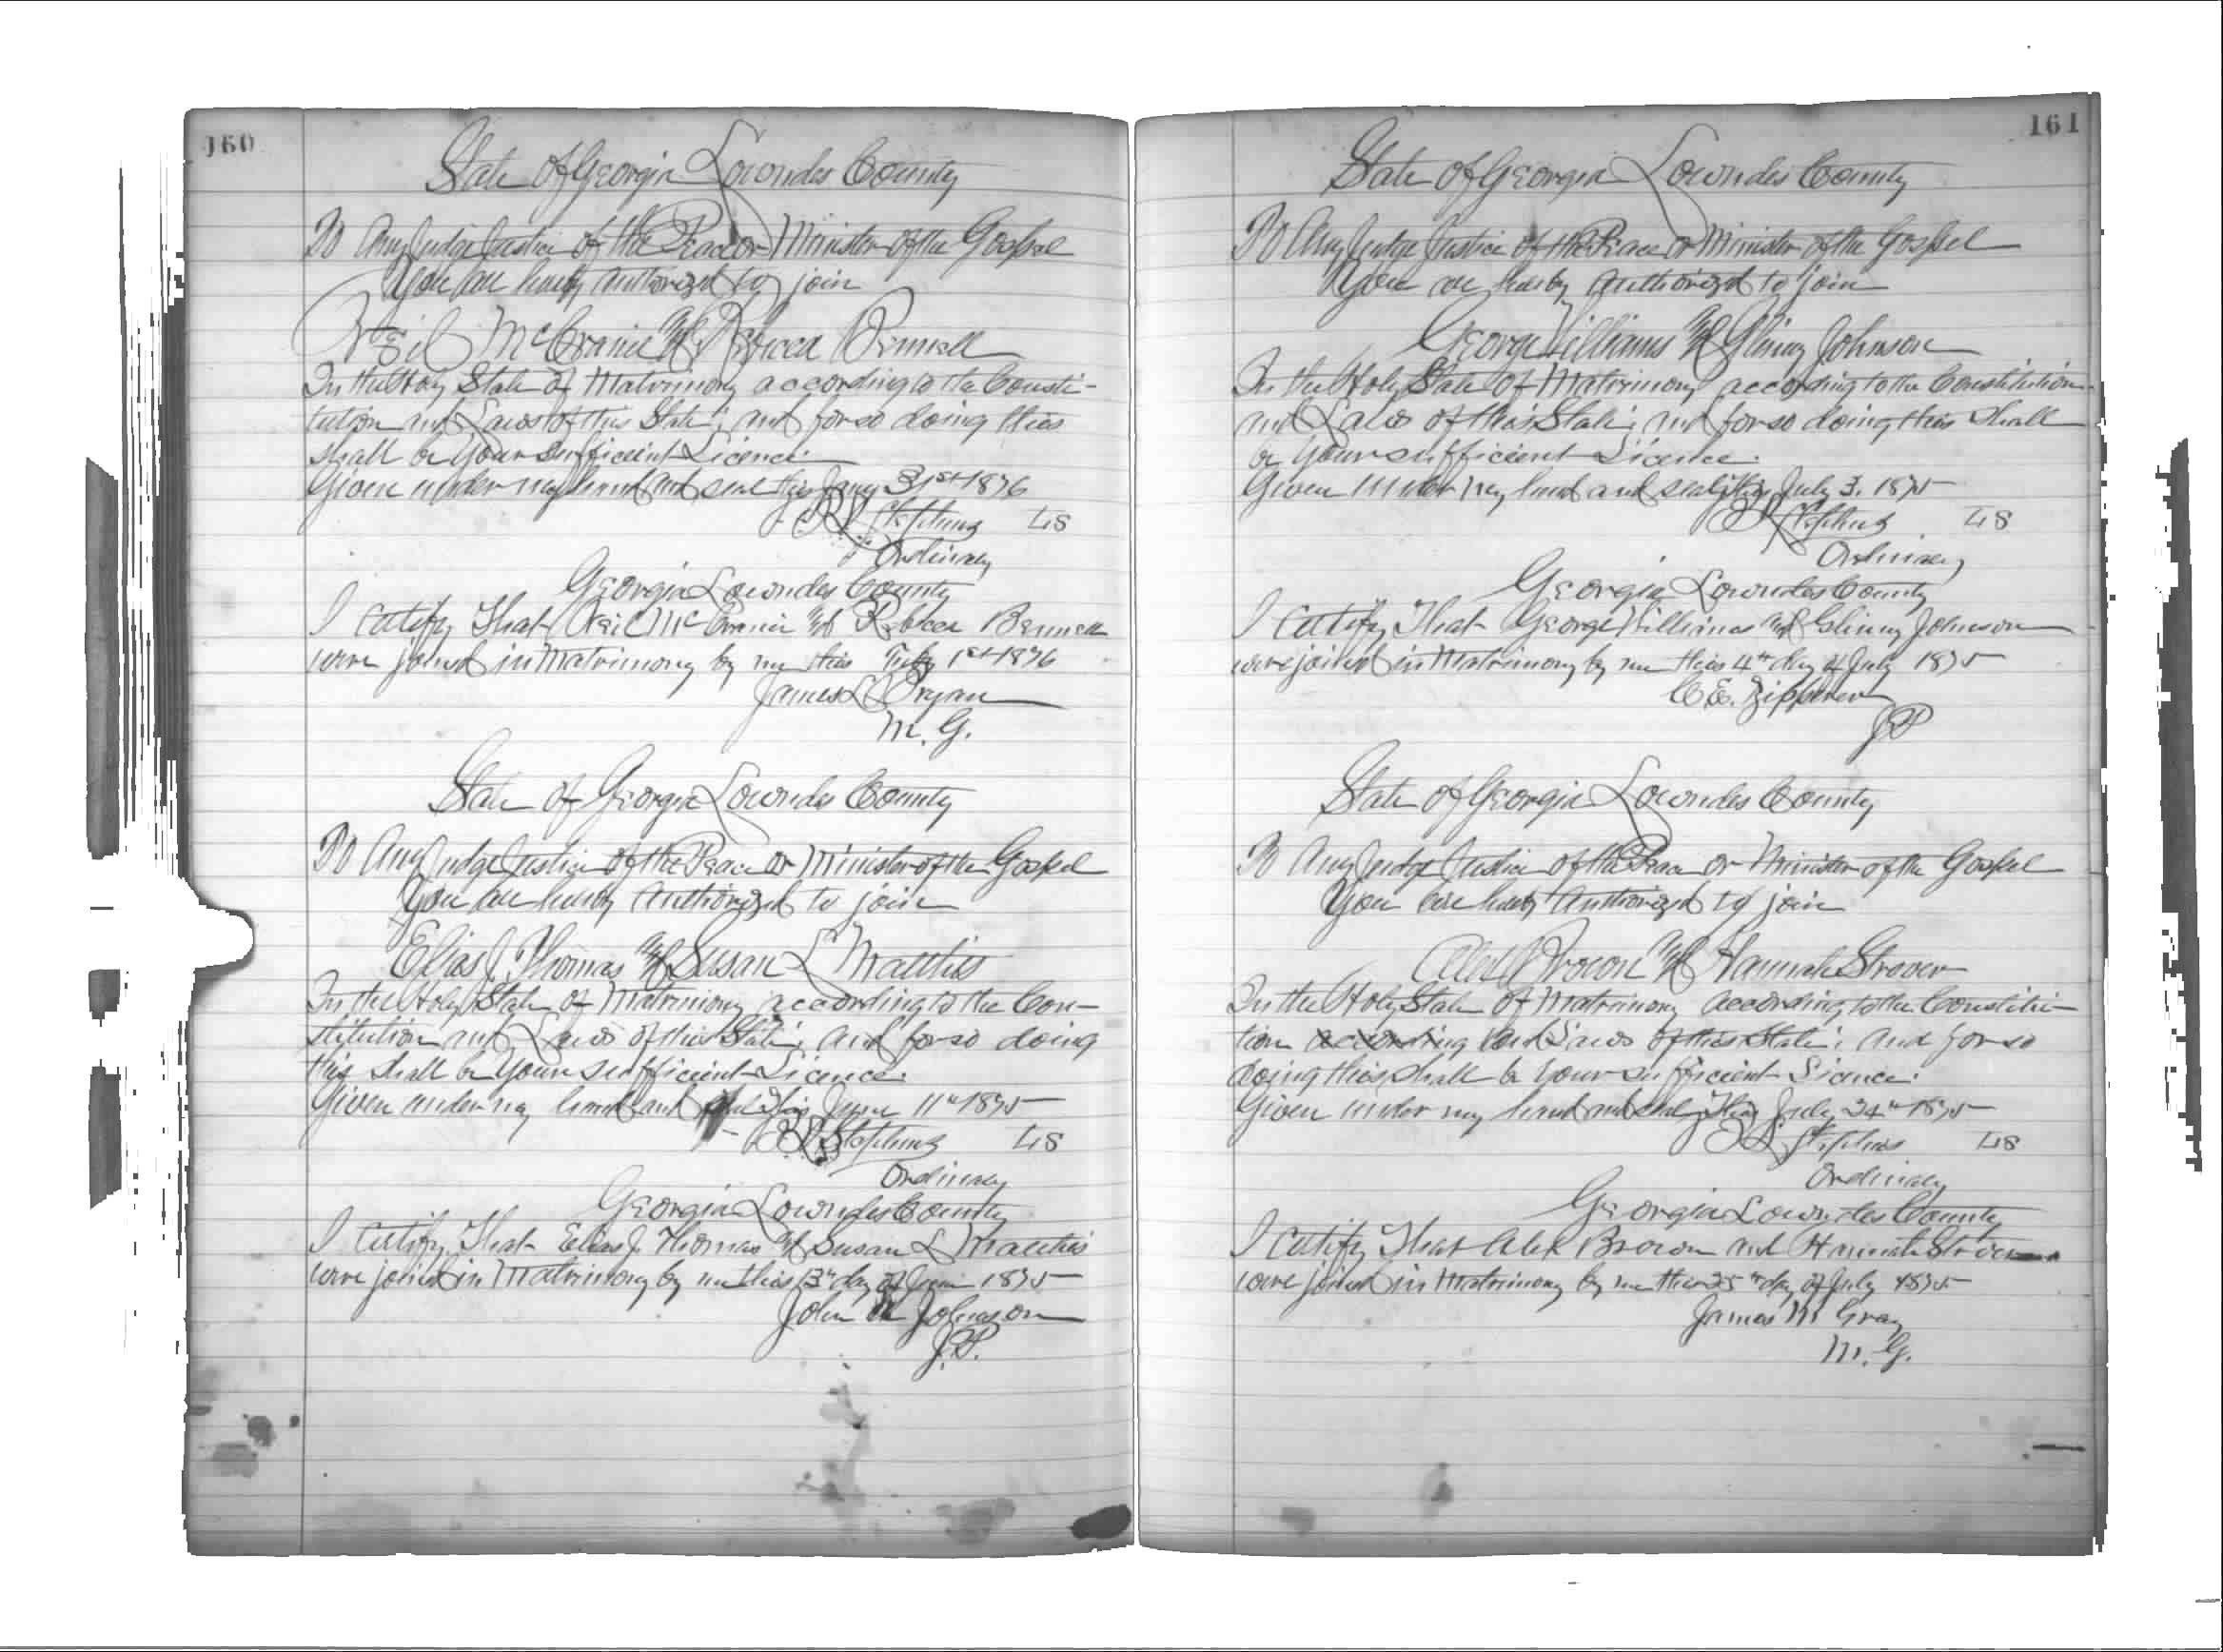 160
State of Georgia Lowndes County
To Any Judge Justice of the Peace or Minister of the Gospel
You are hereby authorized to join
Neil McCranie and Rebecca Bennett
In the Holy State of Matrimony according to the Consti-
tution and Laws of this State; and for so doing this
shall be your sufficient Licence.
Given under my hand and seal this Jany 31st 1876
Stephens LS
Ordinary
Georgia Lowndes County
I certify That Neil McCranie and Rebecca Bennett
were joined in Matrimony by me this 1st 1876
James Bryan
M. G.
State of Georgia Lowndes County
To Any Judge Justice of the Peace or Minister of the Gospel
You are hereby Authorized to join
Elias J. Thomas and Susan L Matthis
In the Holy State of Matrimony according to the Con-
stitution and Laws of this State; and for so doing
this shall be your sufficient Licence.
Given under my hand and seal this June 11th 1875
Stephens LS
Ordinary
Georgia Lowndes County
I certify That Elias J. Thomas and Susan L Matthis
were joined in Matrimony by me this 13th day of June 1875
John Johnson
J.P.
161
State of Georgia Lowndes County
To Any Judge Justice of the Peace or Minister of the Gospel
You are hereby authorized to join
George Williams and Johnson
In the Holy State of Matrimony according to the Constitution
and Laws of this State; and for so doing this shall
be your sufficient Licence.
Given under my hand and seal this July 3. 1875
Stephens LS
Ordinary
Georgia Lowndes County
I certify That George Williams and Johnson
were joined in Matrimony by me this 4th day of July 1875
C E. Zipperer
JP
State of Georgia Lowndes County
To Any Judge Justice of the Peace or Minister of the Gospel
You are hereby Authorized to join
Alex Brown and Hannah Strover
In the Holy State of Matrimony According to the Constitu-
tion according and Laws of this State; and for so
doing this shall be your sufficient Licence.
Given under my hand and seal This July 24th 1875
Stephens LS
Ordinary
Georgia Lowndes County
I certify That Alex Brown and Hannah Strover
were joined in Matrimony by me this 25th day of July 1875
James M Gray
M. G.